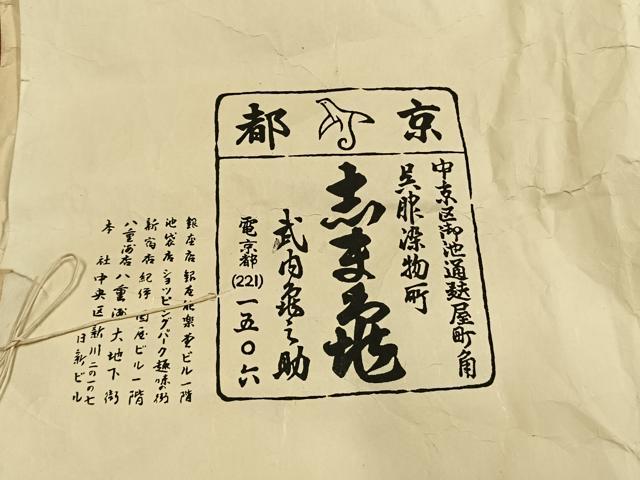 京都
中京区御池通麩屋町角
呉服染物所
志まる亀
武内亀之助
電京都(221)一五〇六
銀座店 銀座能楽堂ビル一階
池袋店 ショッピングパーク趣味の街
新宿店 紀伊國屋ビル一階
八重洲店 八重洲大地下街
本社 中央区新川二の一の七
日新ビル